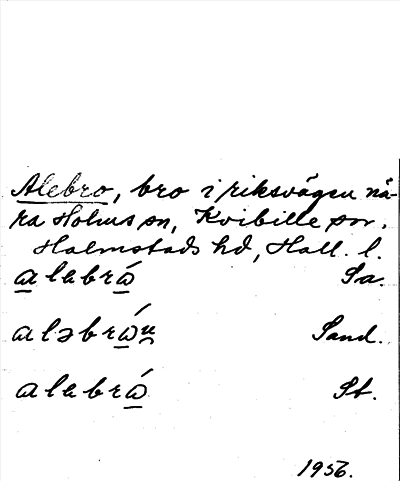 Alebro, bro i riksvägen nä-
ra Holms sn, Kvibille sn,
Halmstads hd, Hall. l.
alebró Sa.
aləbróu̯ Sand.
alebró St.
1956.